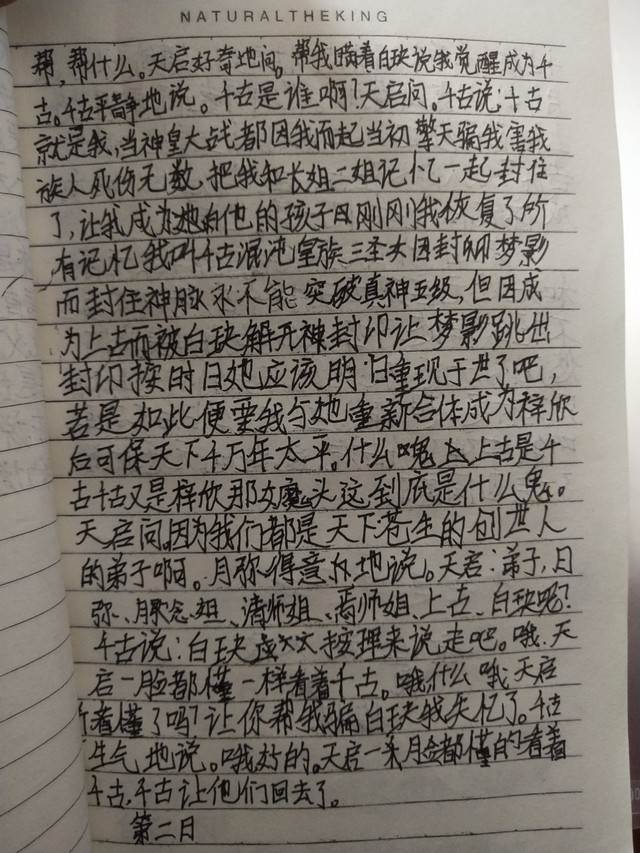 NATURALTHEKING
帮,帮什么。天启好奇地问。帮我瞒着白玦说我觉醒成为千
古。千古平静地说。千古是谁啊?天启问。千古说:千古
就是我,当神皇大战都因我而起当初擎天骗我害我
族人死伤无数,把我和长姐二姐记忆一起封住
了,让我成为她和他的孩子刚刚我恢复了所
有记忆我叫千古混沌皇族三圣女因封印梦影
而封住神脉永不能突破真神五级,但因成
为上古而被白玦解开神封印让梦影跳出
封印按时日她应该明日重现于世了吧,
若是如此便要我与她重新合体成为梓欣
后可保天下千万年太平。什么鬼上古是千
古千古又是梓欣那女魔头这到底是什么鬼。
天启问。因为我们都是天下苍生的创世人
的弟子啊。月弥得意地说。天启:弟子,月
弥、姐、清师姐、师姐、上古、白玦呢?
千古说:白玦按理来说走吧。哦。天
启一脸都懂一样看着千古。哦什么哦天启
看懂了吗?让你帮我骗白玦我失忆了。千古
生气地说。哦好的。天启一脸都懂的看着
千古,千古让他们回去了。
第二日